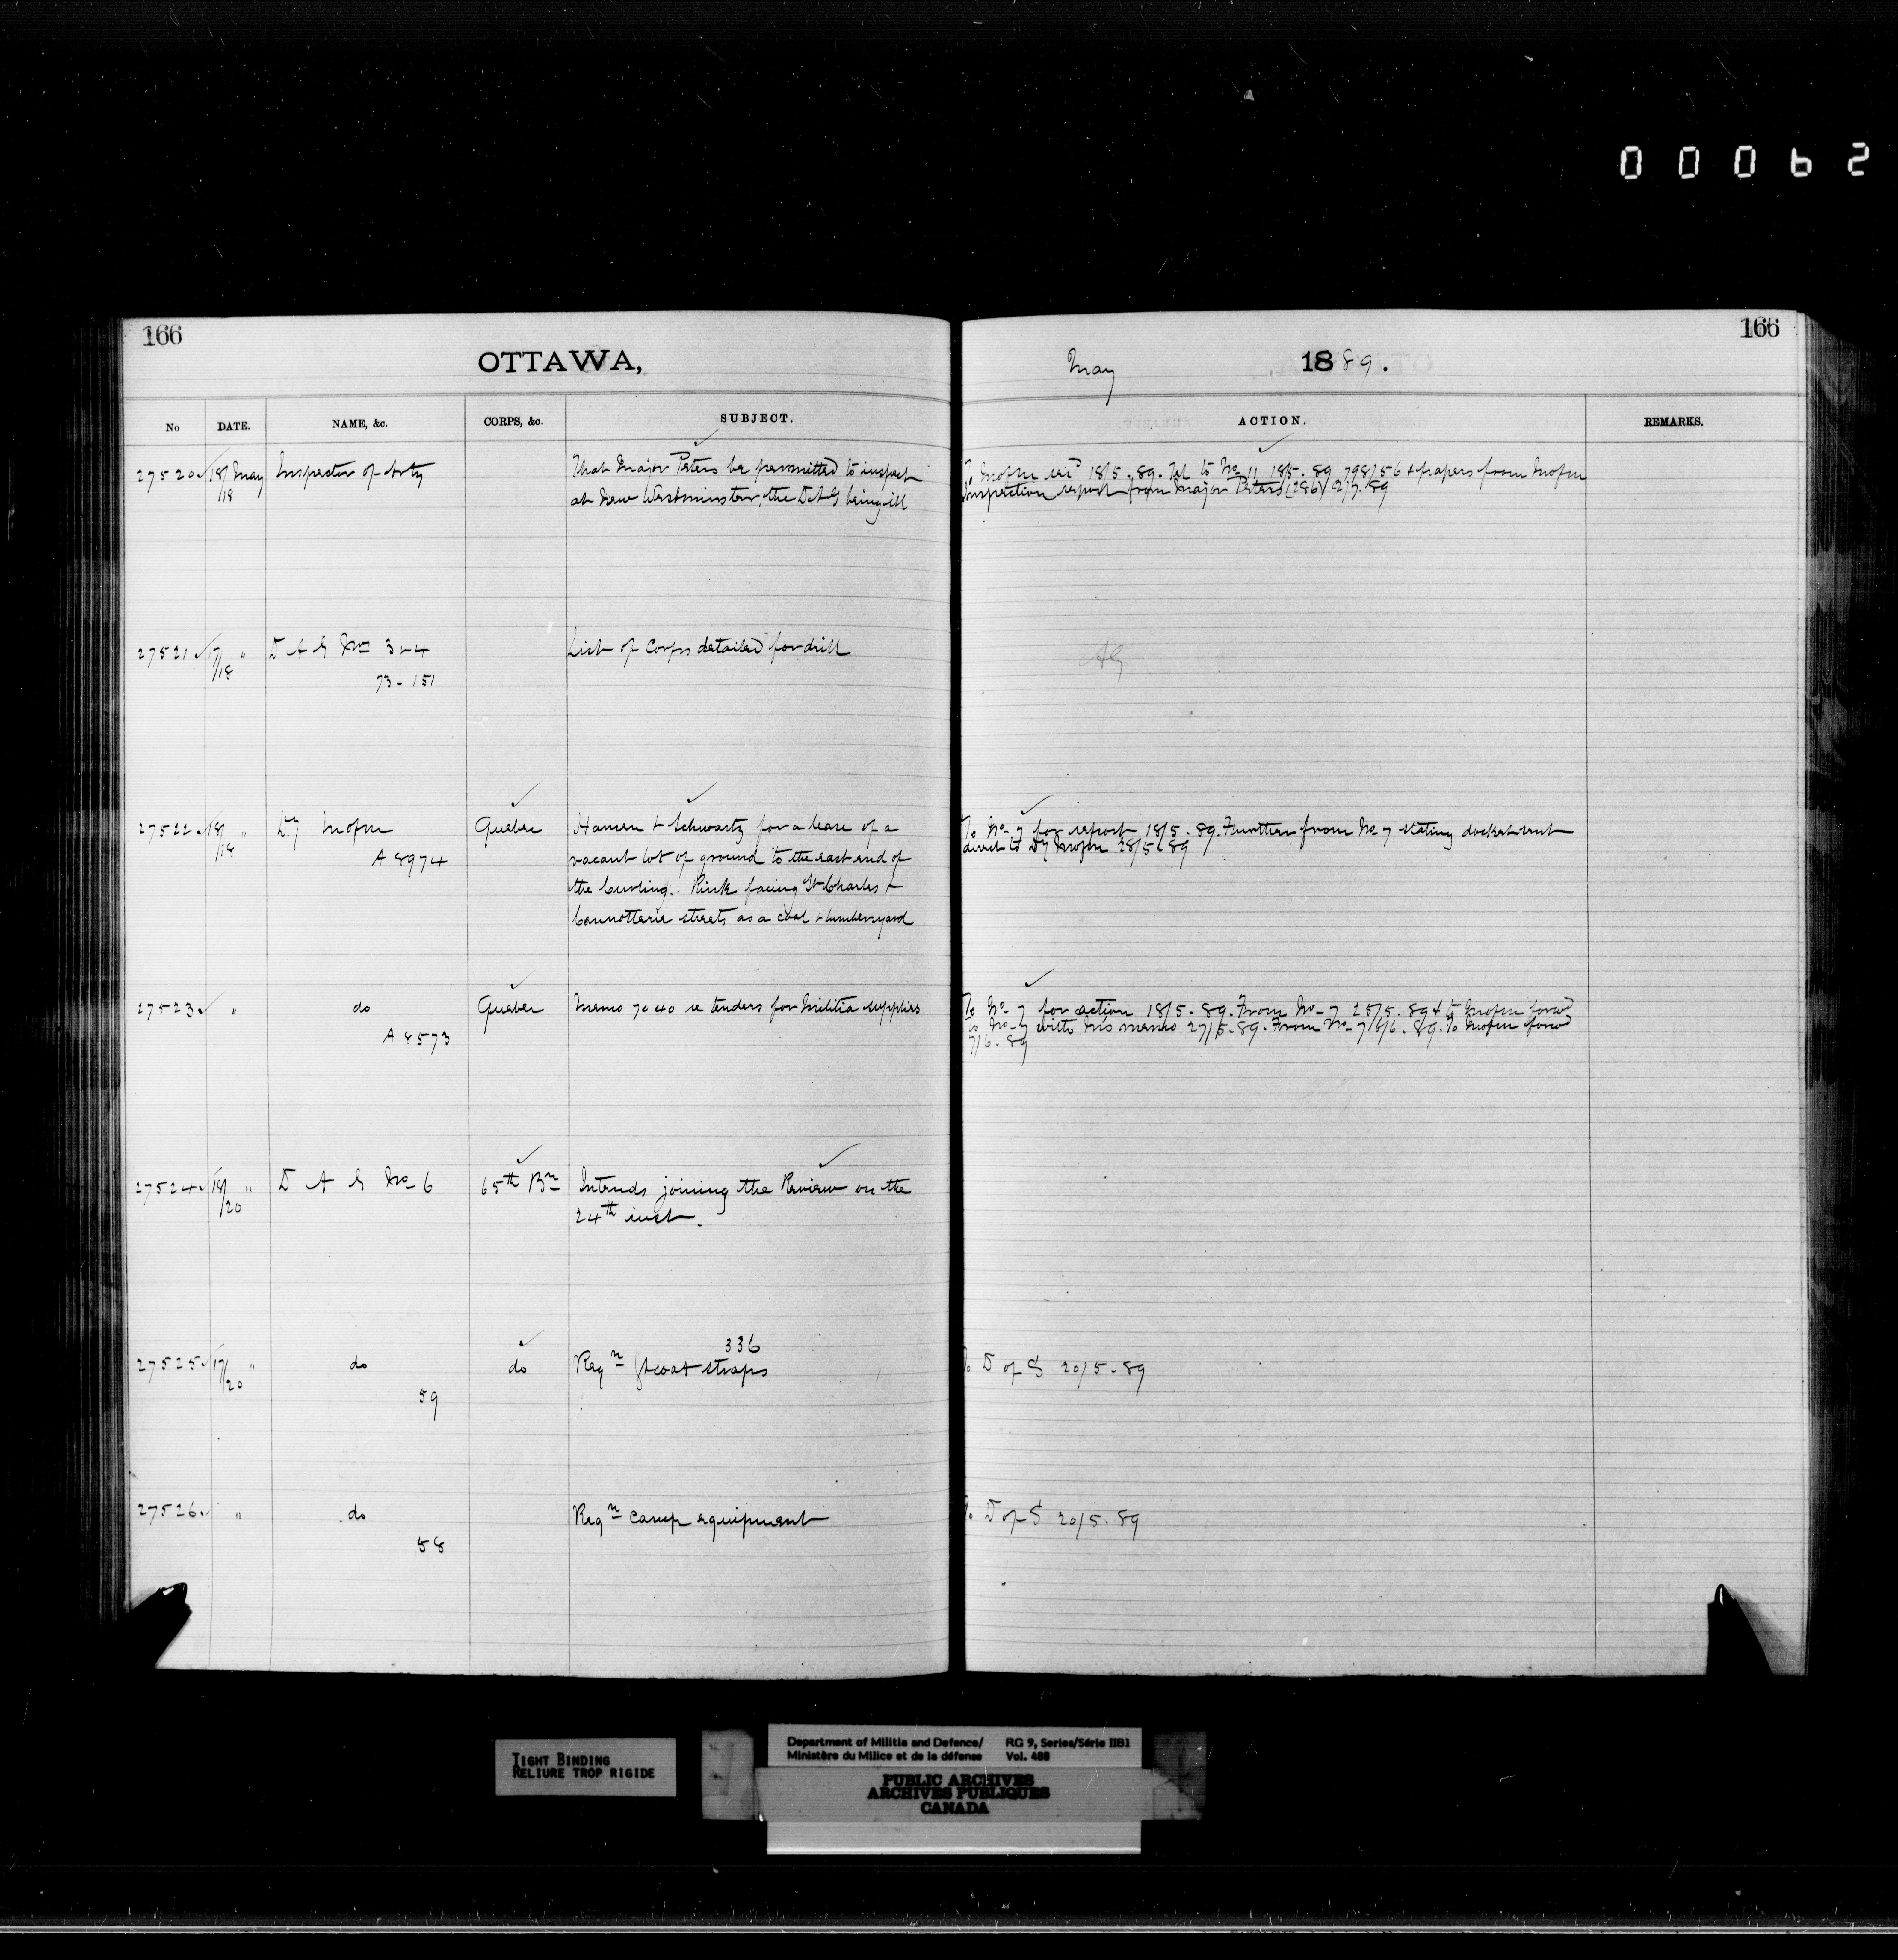 00062
166
166
OTTAWA,
May 1889.
No DATE. NAME, &c. CORPS, &c. SUBJECT. ACTION. REMARKS.
27520 18/18 May Inspector of Arty That Major Peters be permitted to inspect
at New Westminster, the DAG being ill
To Mofm 18/5.89. Tel to No 11 18/5.89 798/56 & papers from Mofm
Inspection report from Major Peters (286) 2/7.89
27521 17/18 " D A G Nos 3 & 4 List of Corps detailed for drill AG
73 - 151
27522 18/18 " Dy Mofm Quebec Hansen & Schwartz for a lease of a
A 8974 vacant lot of ground to the east end of
the Curling Rink facing St Charles &
Cannotterie streets as a coal & lumber yard
To No 7 for report 18/5.89. Further from No 7 stating docket sent
direct to Dy Mofm 28/5.89
27523 " do Quebec Memo 7040 re tenders for Militia supplies
A 8573
To No 7 for action 18/5.89. From No 7 25/5.89 & to Mofm forwd
To No 7 with his memo 27/5.89. From No 7 6/6.89. To Mofm forwd
7/6.89
27524 18/20 " D A G No 6 65th Bn Intends joining the Review on the
24th inst.
336
27525 17/20 " do do Reqn gt coat straps To D of S 20/5.89
59
27526 " do Reqn camp equipment To D of S 20/5.89
58
TIGHT BINDING
RELIURE TROP RIGIDE
Department of Militia and Defence/ RG 9, Series/Série IIB1
Ministère du Milice et de la défense Vol. 488
PUBLIC ARCHIVES
ARCHIVES PUBLIQUES
CANADA